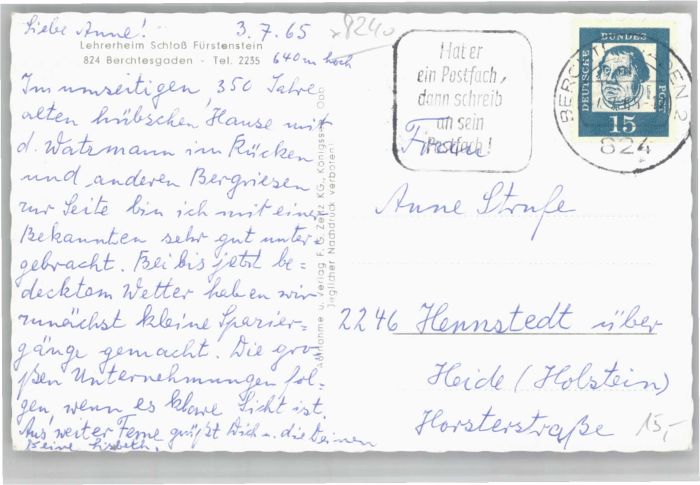 Liebe Anne! 3.7.65
9240
Lehrerheim Schloß Fürstenstein
824 Berchtesgaden - Tel. 2235
640 m hoch
Im umseitigen, 350 Jahre
alten hübschen Hause mit
d. Watzmann im Rücken
und anderen Bergriesen
zur Seite bin ich mit einer
Bekannten sehr gut unter-
gebracht. Bei bis jetzt be-
decktem Wetter haben wir
zunächst kleine Spazier-
gänge gemacht. Die gro-
ßen Unternehmungen fol-
gen, wenn es klare Sicht ist.
Aus weiter Ferne grüßt Dich u. die Deinen
Deine Lisbeth.
Aufnahme u. Verlag F. G. Zeitz KG., Königssee / Obb
Jeglicher Nachdruck verboten!
Hat er
ein Postfach,
dann schreib
an sein
Postfach!
DEUTSCHE BUNDESPOST
15
824
Frau
Anne Strufe
2246 Hennstedt über
Heide (Holstein)
Horsterstraße
15,-